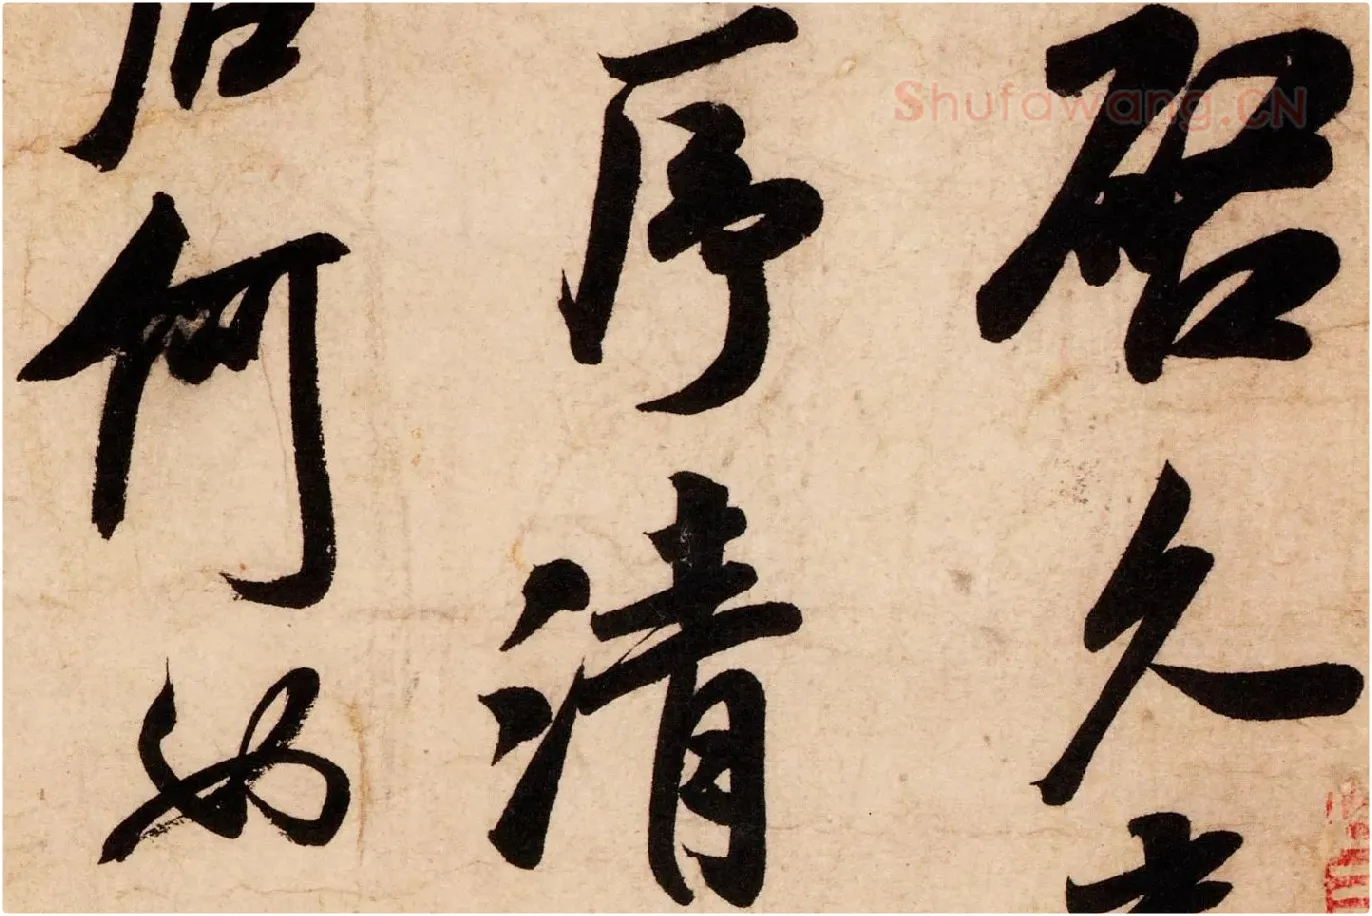 Shufawang.CN
啓久
序清
居何如